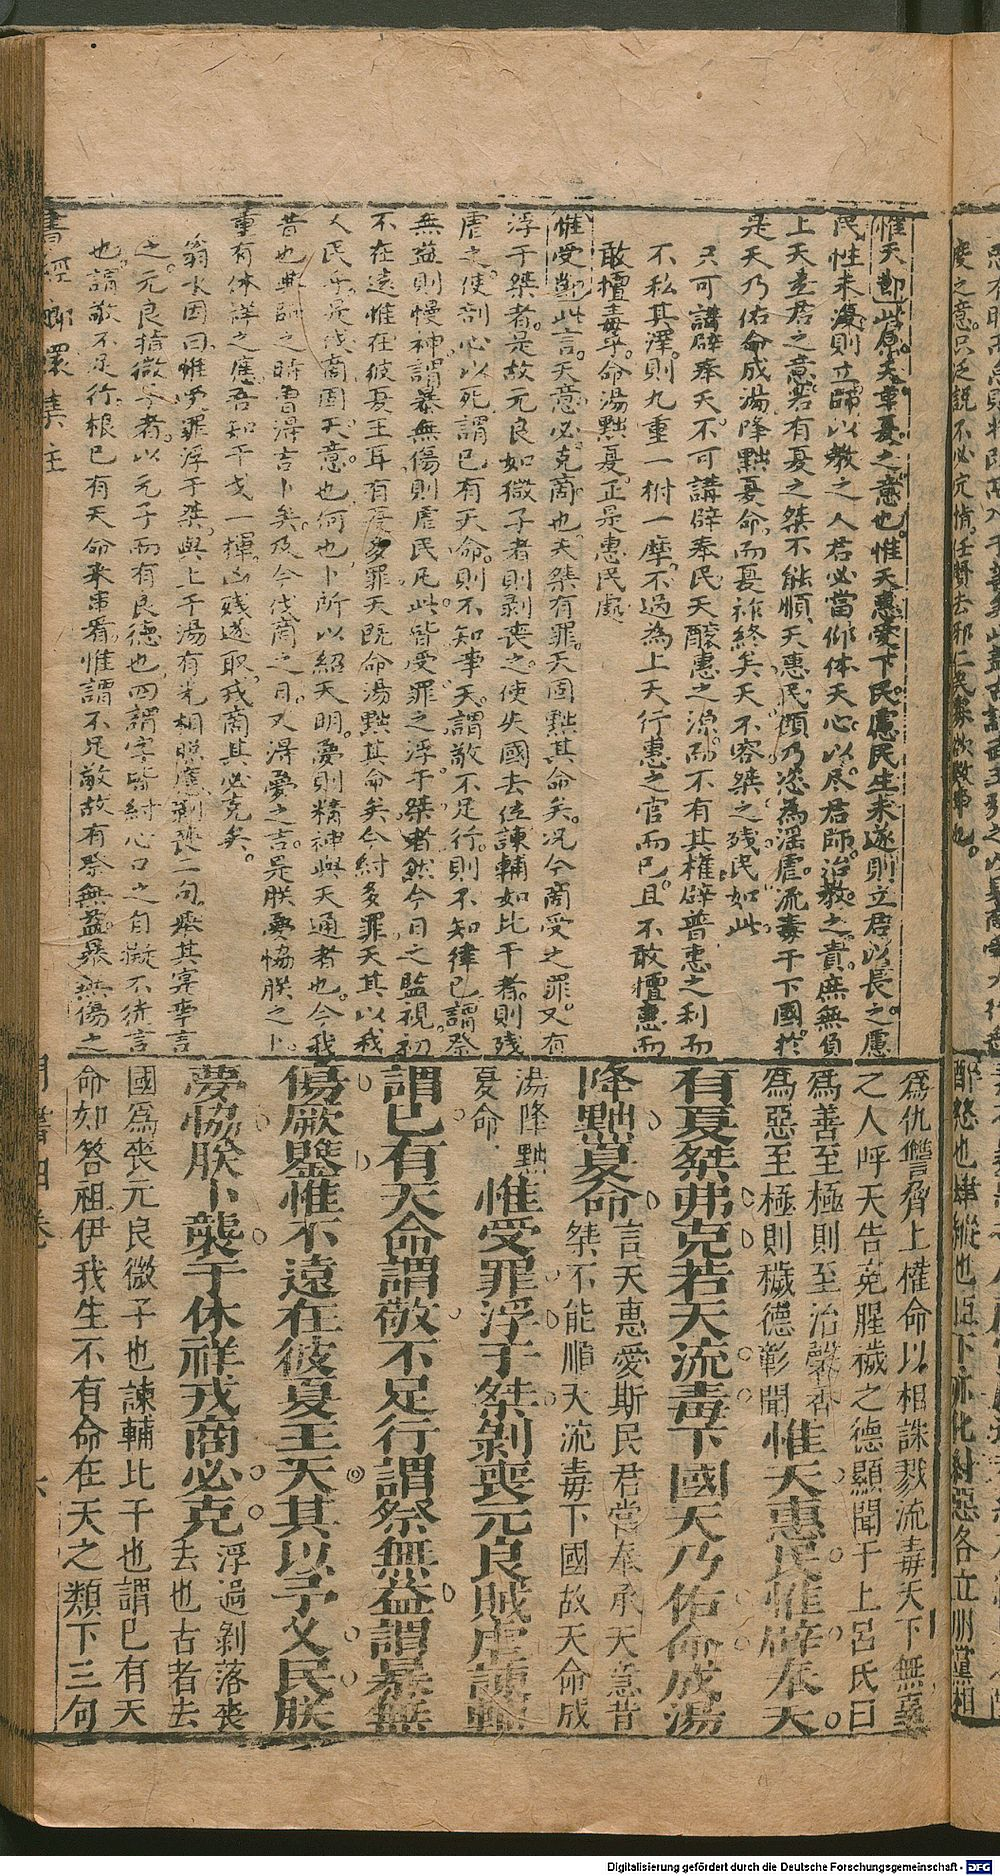 惟天勘此原天車憂之意也惟天惠愛下民慮民生未遂則立君以長之慮
民性未復則立師以教之人君必當仰体天心以尽君師治教之責庶無負
上天立君之意若有夏之桀不能順天惠民頋乃恣為淫虐流毒于下國扵
是天乃佑命成湯降黜夏命而夏祚終矣天不容桀之残民如此
只可講辟奉天不可講辟奉民天釀惠之源而不有其權辟普惠之利而
不私其澤則九重一樹一摩不過為上天行惠之官而已且不敢擅惠而
敢擅毒乎命湯黜夏正是惠民處
惟受勘此言天意必克商也夫桀有罪天固黜其命矣况今商受之罪又有
浮于桀者是故元良如微子者則剥喪之使失國去位諫輔如比干者則残
虐之使剖心以死謂已有天命則不知事天謂敬不足行則不知律已謂祭
無益則慢神謂暴無傷則虐民凡此皆受罪之浮于桀者然今日之監視初
不在遠惟在彼夏王耳有夏多罪天既命湯黜其命矣今紂多罪天其以我
人民乎是伐商固天意也何也卜所以紹天明夢則精神與天通者也今我
昔也興師之時曾得吉卜矣及今伐商之日又得夢之吉是朕夢恊朕之卜
重有休祥之應吾知干戈一揮凶残遂取我商其必克矣
翁水因曰惟受罪浮于桀與上干湯有光相照應剥喪二句承其實事言
之元良指微子者以元子而有良德也四謂字皆紂心口之自擬不待言
也謂敬不足行根已有天命来串看惟謂不足敬故有祭無益暴無傷之
為仇讐脅上權命以相誅戮流毒天下無辜
之人呼天告冤腥穢之德顯聞于上呂氏曰
為善至極則至治馨香
為惡至極則穢德彰聞
惟天惠民惟辟奉天
有夏桀弗克若天流毒下國天乃佑命成湯
降黜夏命
言天惠愛斯民君當奉承天意昔
桀不能順天流毒下國故天命成
湯降黜
夏命
惟受罪浮于桀剝喪元良賊虐諫輔
謂已有天命謂敬不足行謂祭無益謂暴無
傷厥鑒惟不遠在彼夏王天其以予乂民朕
夢恊朕卜襲于休祥戎商必克
浮過剝落喪
去也古者去
國為喪元良微子也諫輔比干也謂已有天
命如答祖伊我生不有命在天之類下三句
書經
周書四卷
六
Digitalisierung gefördert durch die Deutsche Forschungsgemeinschaft - DFG